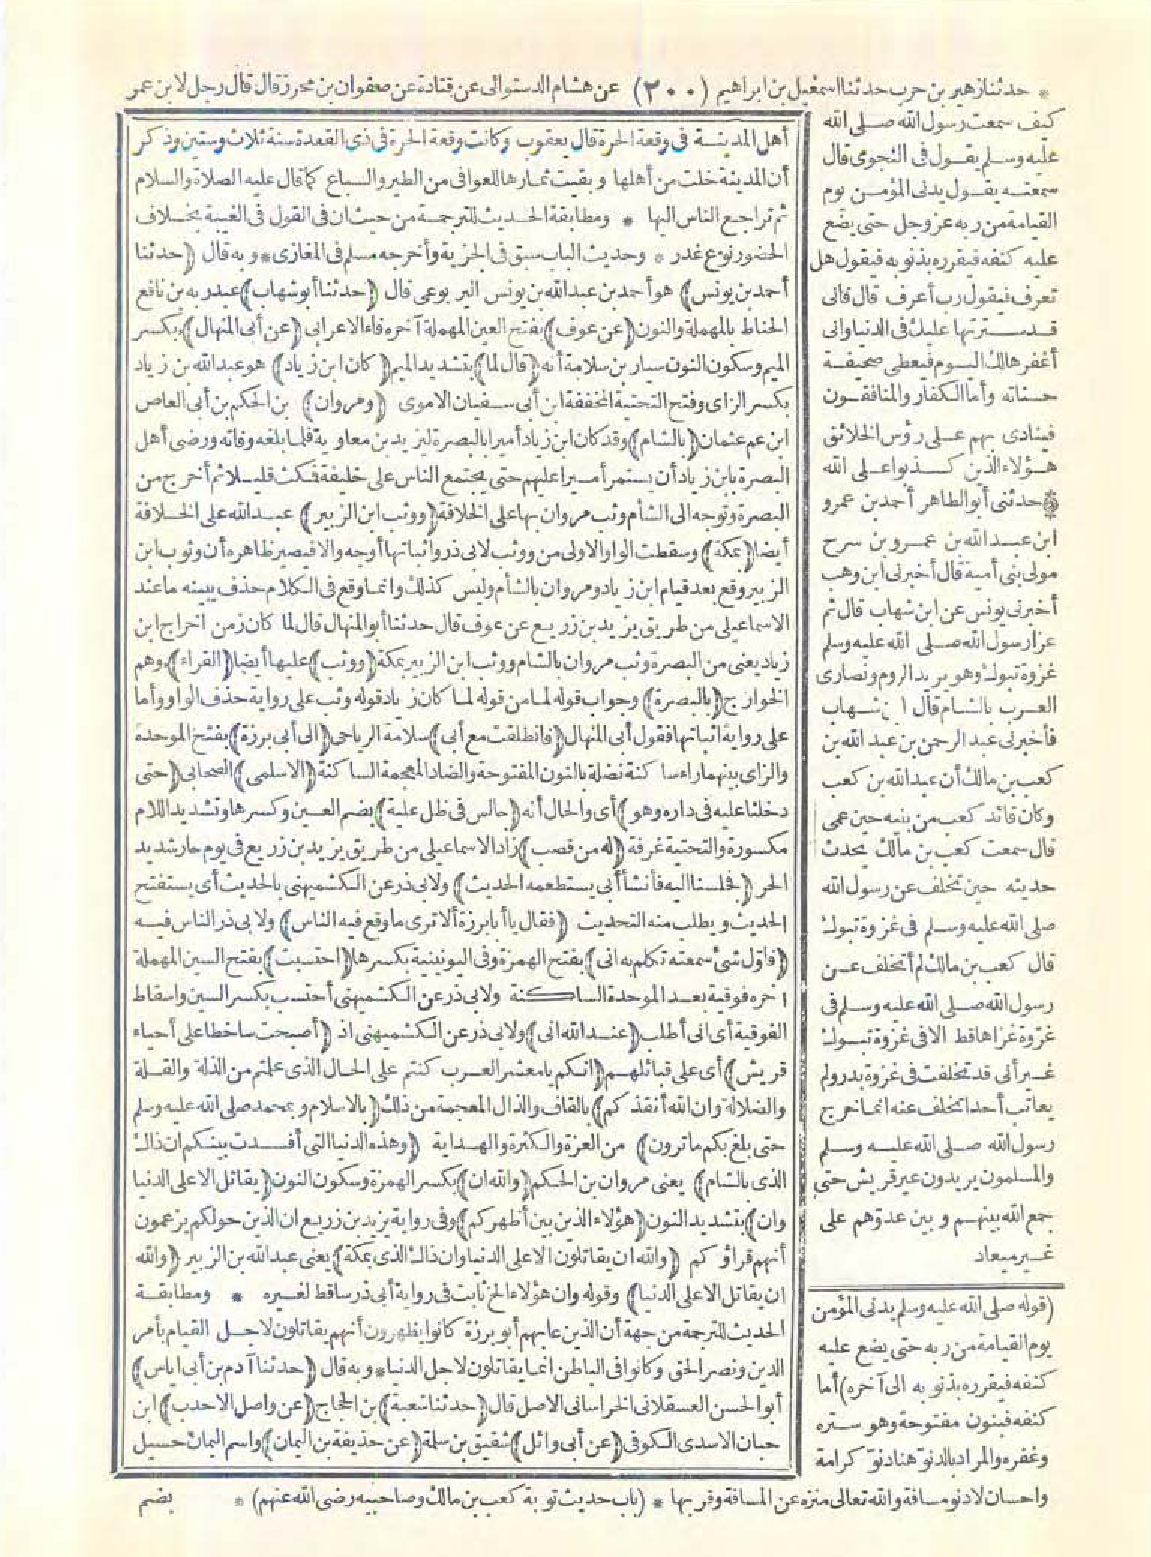 * حدثنا زهير بن حرب حدثنا اسمعيل بن ابراهيم (٢٠٠) عن هشام الدستوائى عن قتادة عن صفوان بن محرز قال قال رجل لابن عمر
كيف سمعت رسول الله صلى الله
عليه وسلم يقول فى النجوى قال
سمعته يقول يدنى المؤمن يوم
القيامة من ربه عز وجل حتى يضع
عليه كنفه فيقرره بذنوبه فيقول هل
تعرف فيقول رب أعرف قال فانى
قد سترتها عليك فى الدنيا وانى
أغفرها لك اليوم فيعطى صحيفة
حسناته وأما الكفار والمنافقون
فينادى بهم على رؤس الخلائق
هؤلاء الذين كذبوا على الله
* حدثنى أبو الطاهر أحمد بن عمرو
ابن عبد الله بن عمرو بن سرح
مولى بنى أمية قال أخبرنى ابن وهب
أخبرنى يونس عن ابن شهاب قال ثم
غزا رسول الله صلى الله عليه وسلم
غزوة تبوك وهو يريد الروم ونصارى
العرب بالشام قال ابن شهاب
فأخبرنى عبد الرحمن بن عبد الله بن
كعب بن مالك أن عبد الله بن كعب
وكان قائد كعب من بنيه حين عمى
قال سمعت كعب بن مالك يحدث
حديثه حين تخلف عن رسول الله
صلى الله عليه وسلم فى غزوة تبوك
قال كعب بن مالك لم أتخلف عن
رسول الله صلى الله عليه وسلم فى
غزوة غزاها قط الا فى غزوة تبوك
غير أنى قد تخلفت فى غزوة بدر ولم
يعاتب أحدا تخلف عنه انما خرج
رسول الله صلى الله عليه وسلم
والمسلمون يريدون عير قريش حتى
جمع الله بينهم و بين عدوهم على
غير ميعاد
(قوله صلى الله عليه وسلم يدنى المؤمن
يوم القيامة من ربه حتى يضع عليه
كنفه فيقرره بذنوبه الى آخره) أما
كنفه فبنون مفتوحة وهو ستره
وغفره والمراد بالدنو هنا دنو كرامة
واحسان لا دنو مسافة والله تعالى منزه عن المسافة وقربها * (باب حديث توبة كعب بن مالك وصاحبيه رضى الله عنهم) *
أهل المدينة فى وقعة الحرة قال يعقوب وكانت وقعة الحرة فى ذى القعدة سنة ثلاث وستين وذكر
أن المدينة خلت من أهلها و بقيت ثمارها للعوافى من الطير والسباع كما قال عليه الصلاة والسلام
ثم تراجع الناس اليها * ومطابقة الحديث للترجمة من حيث ان فى القول فى الغيبة بخلاف
الحضور نوع غدر * وحديث الباب سبق فى الجزية وأخرجه مسلم فى المغازى * و به قال (حدثنا
أحمد بن يونس) هو أحمد بن عبد الله بن يونس اليربوعى قال (حدثنا أبو شهاب) عبد ربه بن نافع
الحناط بالمهملة والنون (عن عوف) بفتح العين المهملة آخره فاء الاعرابى (عن أبى المنهال) بكسر
الميم وسكون النون سيار بن سلامة أنه (قال لما) بتشديد الميم (كان ابن زياد) هو عبد الله بن زياد
بكسر الزاى وفتح التحتية المخففة ابن أبى سفيان الاموى (ومروان) بن الحكم بن أبى العاص
ابن عم عثمان (بالشام) وقد كان ابن زياد أميرا بالبصرة ليزيد بن معاوية فلما بلغه وفاته ورضى أهل
البصرة بابن زياد أن يستمر أميرا عليهم حتى يجتمع الناس على خليفة فمكث قليلا ثم أخرج من
البصرة وتوجه الى الشأم وثب مروان بها على الخلافة (ووثب ابن الزبير) عبد الله على الخلافة
أيضا (بمكة) وسقطت الواو الاولى من ووثب لابى ذر واثباتها أوجه والا فيصير ظاهره أن وثوب ابن
الزبير وقع بعد قيام ابن زياد ومروان بالشأم وليس كذلك وانما وقع فى الكلام حذف يبينه ما عند
الاسماعيلى من طريق يزيد بن زريع عن عوف قال حدثنا أبو المنهال قال لما كان زمن اخراج ابن
زياد يعنى من البصرة وثب مروان بالشام ووثب ابن الزبير بمكة (ووثب) عليها أيضا (القراء) وهم
الخوارج (بالبصرة) وجواب قوله لما من قوله لما كان زياد قوله وثب على رواية حذف الواو وأما
على رواية اثباتها فقول أبى المنهال (فانطلقت مع أبى) سلامة الرياحى (الى أبى برزة) بفتح الموحدة
والزاى بينهما راء ساكنة نضلة بالنون المفتوحة والضاد المعجمة الساكنة (الاسلمى) الصحابى (حتى
دخلنا عليه فى داره وهو) أى والحال أنه (جالس فى ظل علية) بضم العين وكسرها وتشديد اللام
مكسورة والتحتية غرفة (له من قصب) زاد الاسماعيلى من طريق يزيد بن زريع فى يوم حار شديد
الحر (فجلسنا اليه فأنشأ أبى يستطعمه الحديث) ولابى ذر عن الكشميهنى بالحديث أى يستفتح
الحديث و يطلب منه التحديث (فقال يا أبا برزة ألا ترى ما وقع فيه الناس) ولابى ذر الناس فيه
(فاول شئ سمعته تكلم به انى) بفتح الهمزة وفى اليونينية بكسرها (احتسبت) بفتح السين المهملة
آخره فوقية بعد الموحدة الساكنة ولابى ذر عن الكشميهنى أحتسب بكسر السين واسقاط
الفوقية أى انى أطلب (عند الله انى) ولابى ذر عن الكشميهنى اذ (أصبحت ساخطا على أحياء
قريش) أى على قبائلهم (انكم يا معشر العرب كنتم على الحال الذى علمتم من الذلة والقلة
والضلالة وان الله أنقذكم) بالقاف والذال المعجمة من ذلك (بالاسلام و بمحمد صلى الله عليه وسلم
حتى بلغ بكم ما ترون) من العزة والكثرة والهداية (وهذه الدنيا التى أفسدت بينكم ان ذاك
الذى بالشام) يعنى مروان بن الحكم (والله ان) بكسر الهمزة وسكون النون (يقاتل الا على الدنيا
وان) بتشديد النون (هؤلاء الذين بين أظهركم) وفى رواية يزيد بن زريع ان الذين حولكم يزعمون
أنهم قراؤكم (والله ان يقاتلون الا على الدنيا وان ذاك الذى بمكة) يعنى عبد الله بن الزبير (والله
ان يقاتل الا على الدنيا) وقوله وان هؤلاء الخ ثابت فى رواية أبى ذر ساقط لغيره * ومطابقة
الحديث للترجمة من جهة أن الذين عابهم أبو برزة كانوا يظهرون أنهم يقاتلون لاجل القيام بأمر
الدين ونصر الحق وكانوا فى الباطن انما يقاتلون لاجل الدنيا * و به قال (حدثنا آدم بن أبى اياس)
أبو الحسن العسقلانى الخراسانى الاصل قال (حدثنا شعبة) بن الحجاج (عن واصل الاحدب) ابن
حبان الاسدى الكوفى (عن أبى وائل) شقيق بن سلمة (عن حذيفة بن اليمان) واسم اليمان حسيل
بضم